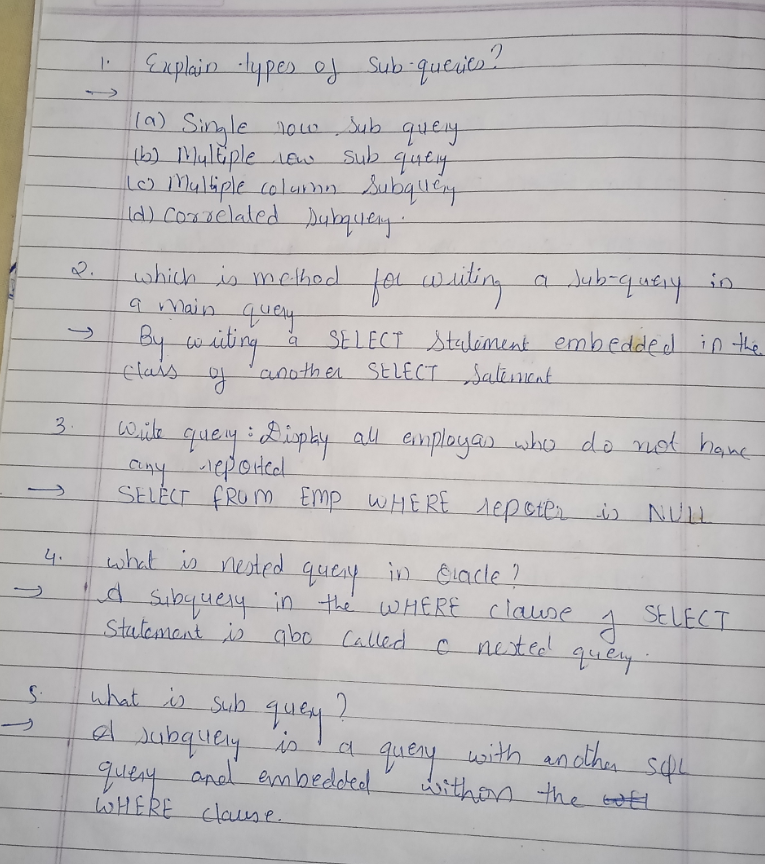 1. Explain types of sub-queries?
→
(a) Single row sub query
(b) Multiple row sub query
(c) Multiple column subquery
(d) Correlated subquery.
2. which is method for writing a sub-query in
a main query
→ By writing a SELECT Statement embedded in the
class of another SELECT Satement
3. Write query: Display all employees who do not have
any reported
→ SELECT FROM EMP WHERE repoter is NULL
4. what is nested query in Oracle?
→ A subquery in the WHERE clause of SELECT
Statement is also called a nested query.
5. what is sub query?
→ A subquery is a query with another SQL
query and embedded withon the
WHERE clause.